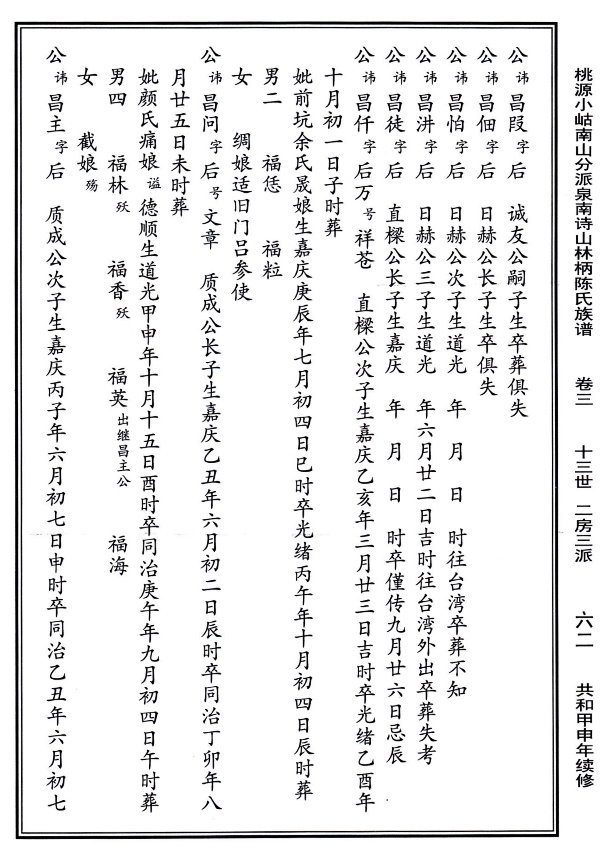 桃源小岵南山分派泉南诗山林柄陈氏族谱 卷三 十三世 二房三派 六二 共和甲申年续修
公讳昌段字后 诚友公嗣子生卒葬俱失
公讳昌佃字后 日赫公长子生卒俱失
公讳昌怕字后 日赫公次子生道光 年 月 日 时往台湾卒葬不知
公讳昌汫字后 日赫公三子生道光 年六月廿二日吉时往台湾外出卒葬失考
公讳昌徒字后 直樑公长子生嘉庆 年 月 日 时卒僅传九月廿六日忌辰
公讳昌仟字后万号祥苍 直樑公次子生嘉庆乙亥年三月廿三日吉时卒光绪乙酉年
十月初一日子时葬
妣前坑余氏晟娘生嘉庆庚辰年七月初四日巳时卒光绪丙午年十月初四日辰时葬
男二 福恁 福粒
女 绸娘适旧门吕参使
公讳昌问字后号文章 质成公长子生嘉庆乙丑年六月初二日辰时卒同治丁卯年八
月廿五日未时葬
妣颜氏痛娘谥德顺生道光甲申年十月十五日酉时卒同治庚午年九月初四日午时葬
男四 福林殀 福香殀 福英出继昌主公 福海
女 截娘殇
公讳昌主字后 质成公次子生嘉庆丙子年六月初七日申时卒同治乙丑年六月初七